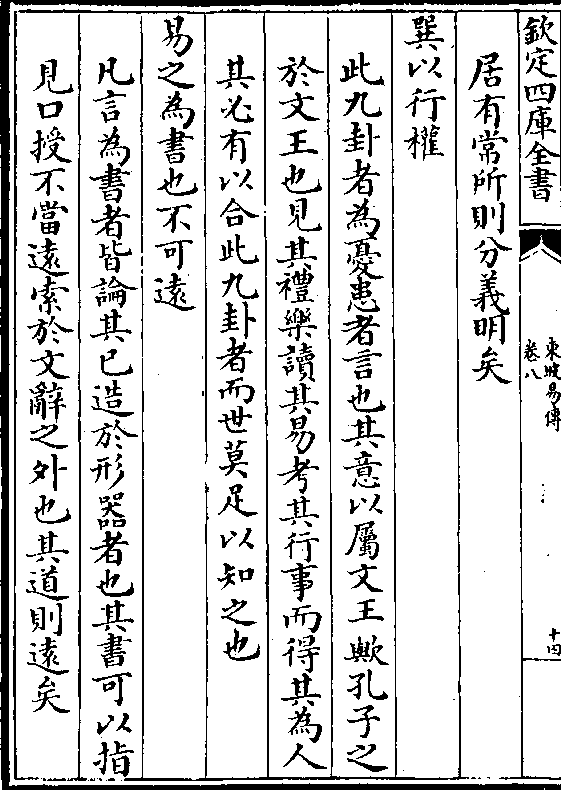 欽定四庫全書
東坡易傳
卷八
十四
居有常所則分義明矣
巽以行權
此九卦者為憂患者言也其意以屬文王歟孔子之
於文王也見其禮樂讀其易考其行事而得其為人
其必有以合此九卦者而世莫足以知之也
易之為書也不可遠
凡言為書者皆論其已造於形器者也其書可以指
見口授不當遠索於文辭之外也其道則遠矣